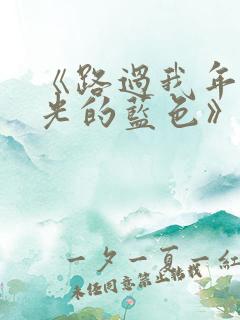 《路過我年
光的藍色》
一夕一夏一紅
未经同意禁止转载